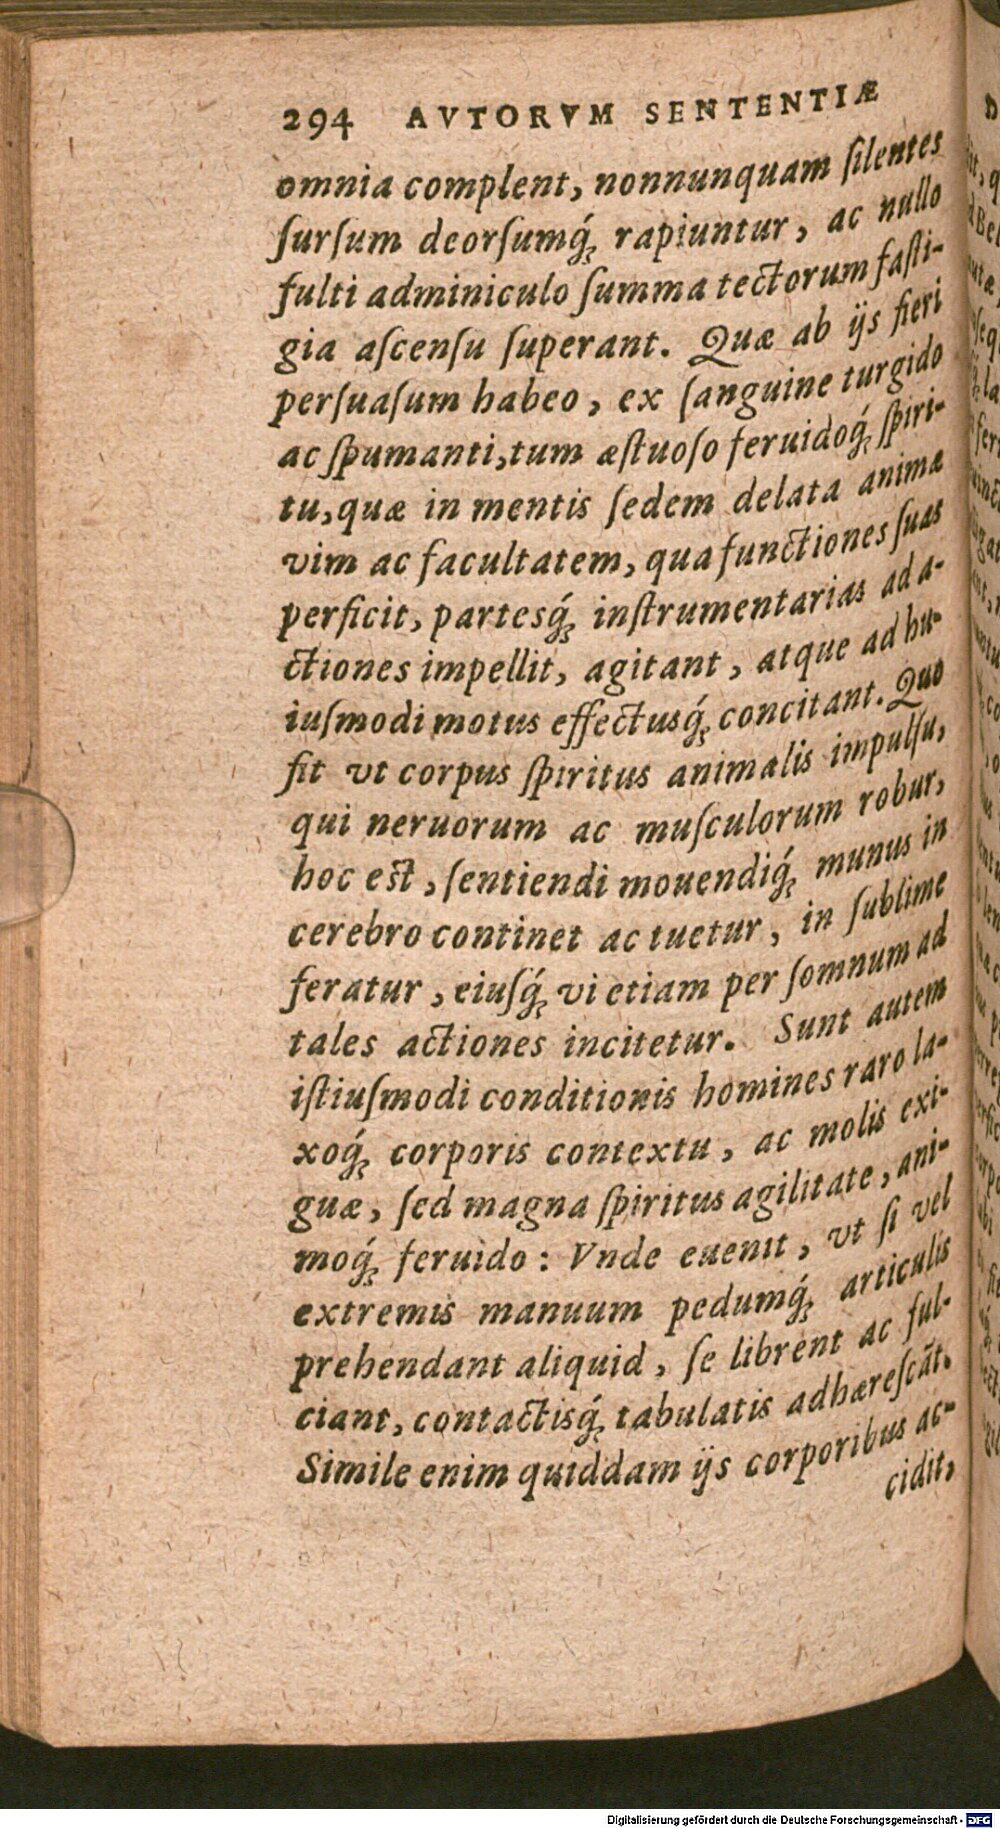 294 AVTORVM SENTENTIÆ
omnia complent, nonnunquam ſilentes
ſurſum deorſumq́ʒ rapiuntur, ac nullo
fulti adminiculo ſumma tectorum faſti-
gia aſcenſu ſuperant. Quæ ab ijs fieri
perſuaſum habeo, ex ſanguine turgido
ac ſpumanti, tum æſtuoſo feruidoq́ʒ ſpiri-
tu, quæ in mentis ſedem delata animæ
vim ac facultatem, qua functiones ſuas
perficit, partesq́ʒ inſtrumentarias ad a-
ctiones impellit, agitant, atque ad hu-
iuſmodi motus effectusq́ʒ concitant. Quo
fit vt corpus ſpiritus animalis impulſu,
qui neruorum ac muſculorum robur,
hoc eſt, ſentiendi mouendiq́ʒ munus in
cerebro continet ac tuetur, in ſublime
feratur, eiuſq́ʒ vi etiam per ſomnum ad
tales actiones incitetur. Sunt autem
iſtiuſmodi conditionis homines raro la-
xoq́ʒ corporis contextu, ac molis exi-
guæ, ſed magna ſpiritus agilitate, ani-
moq́ʒ feruido: Vnde euenit, vt ſi vel
extremis manuum pedumq́ʒ articulis
prehendant aliquid, ſe librent ac ful-
ciant, contactisq́ʒ tabulatis adhæreſcãt.
Simile enim quiddam ijs corporibus ac-
cidit,
Digitalisierung gefördert durch die Deutsche Forschungsgemeinschaft - DFG